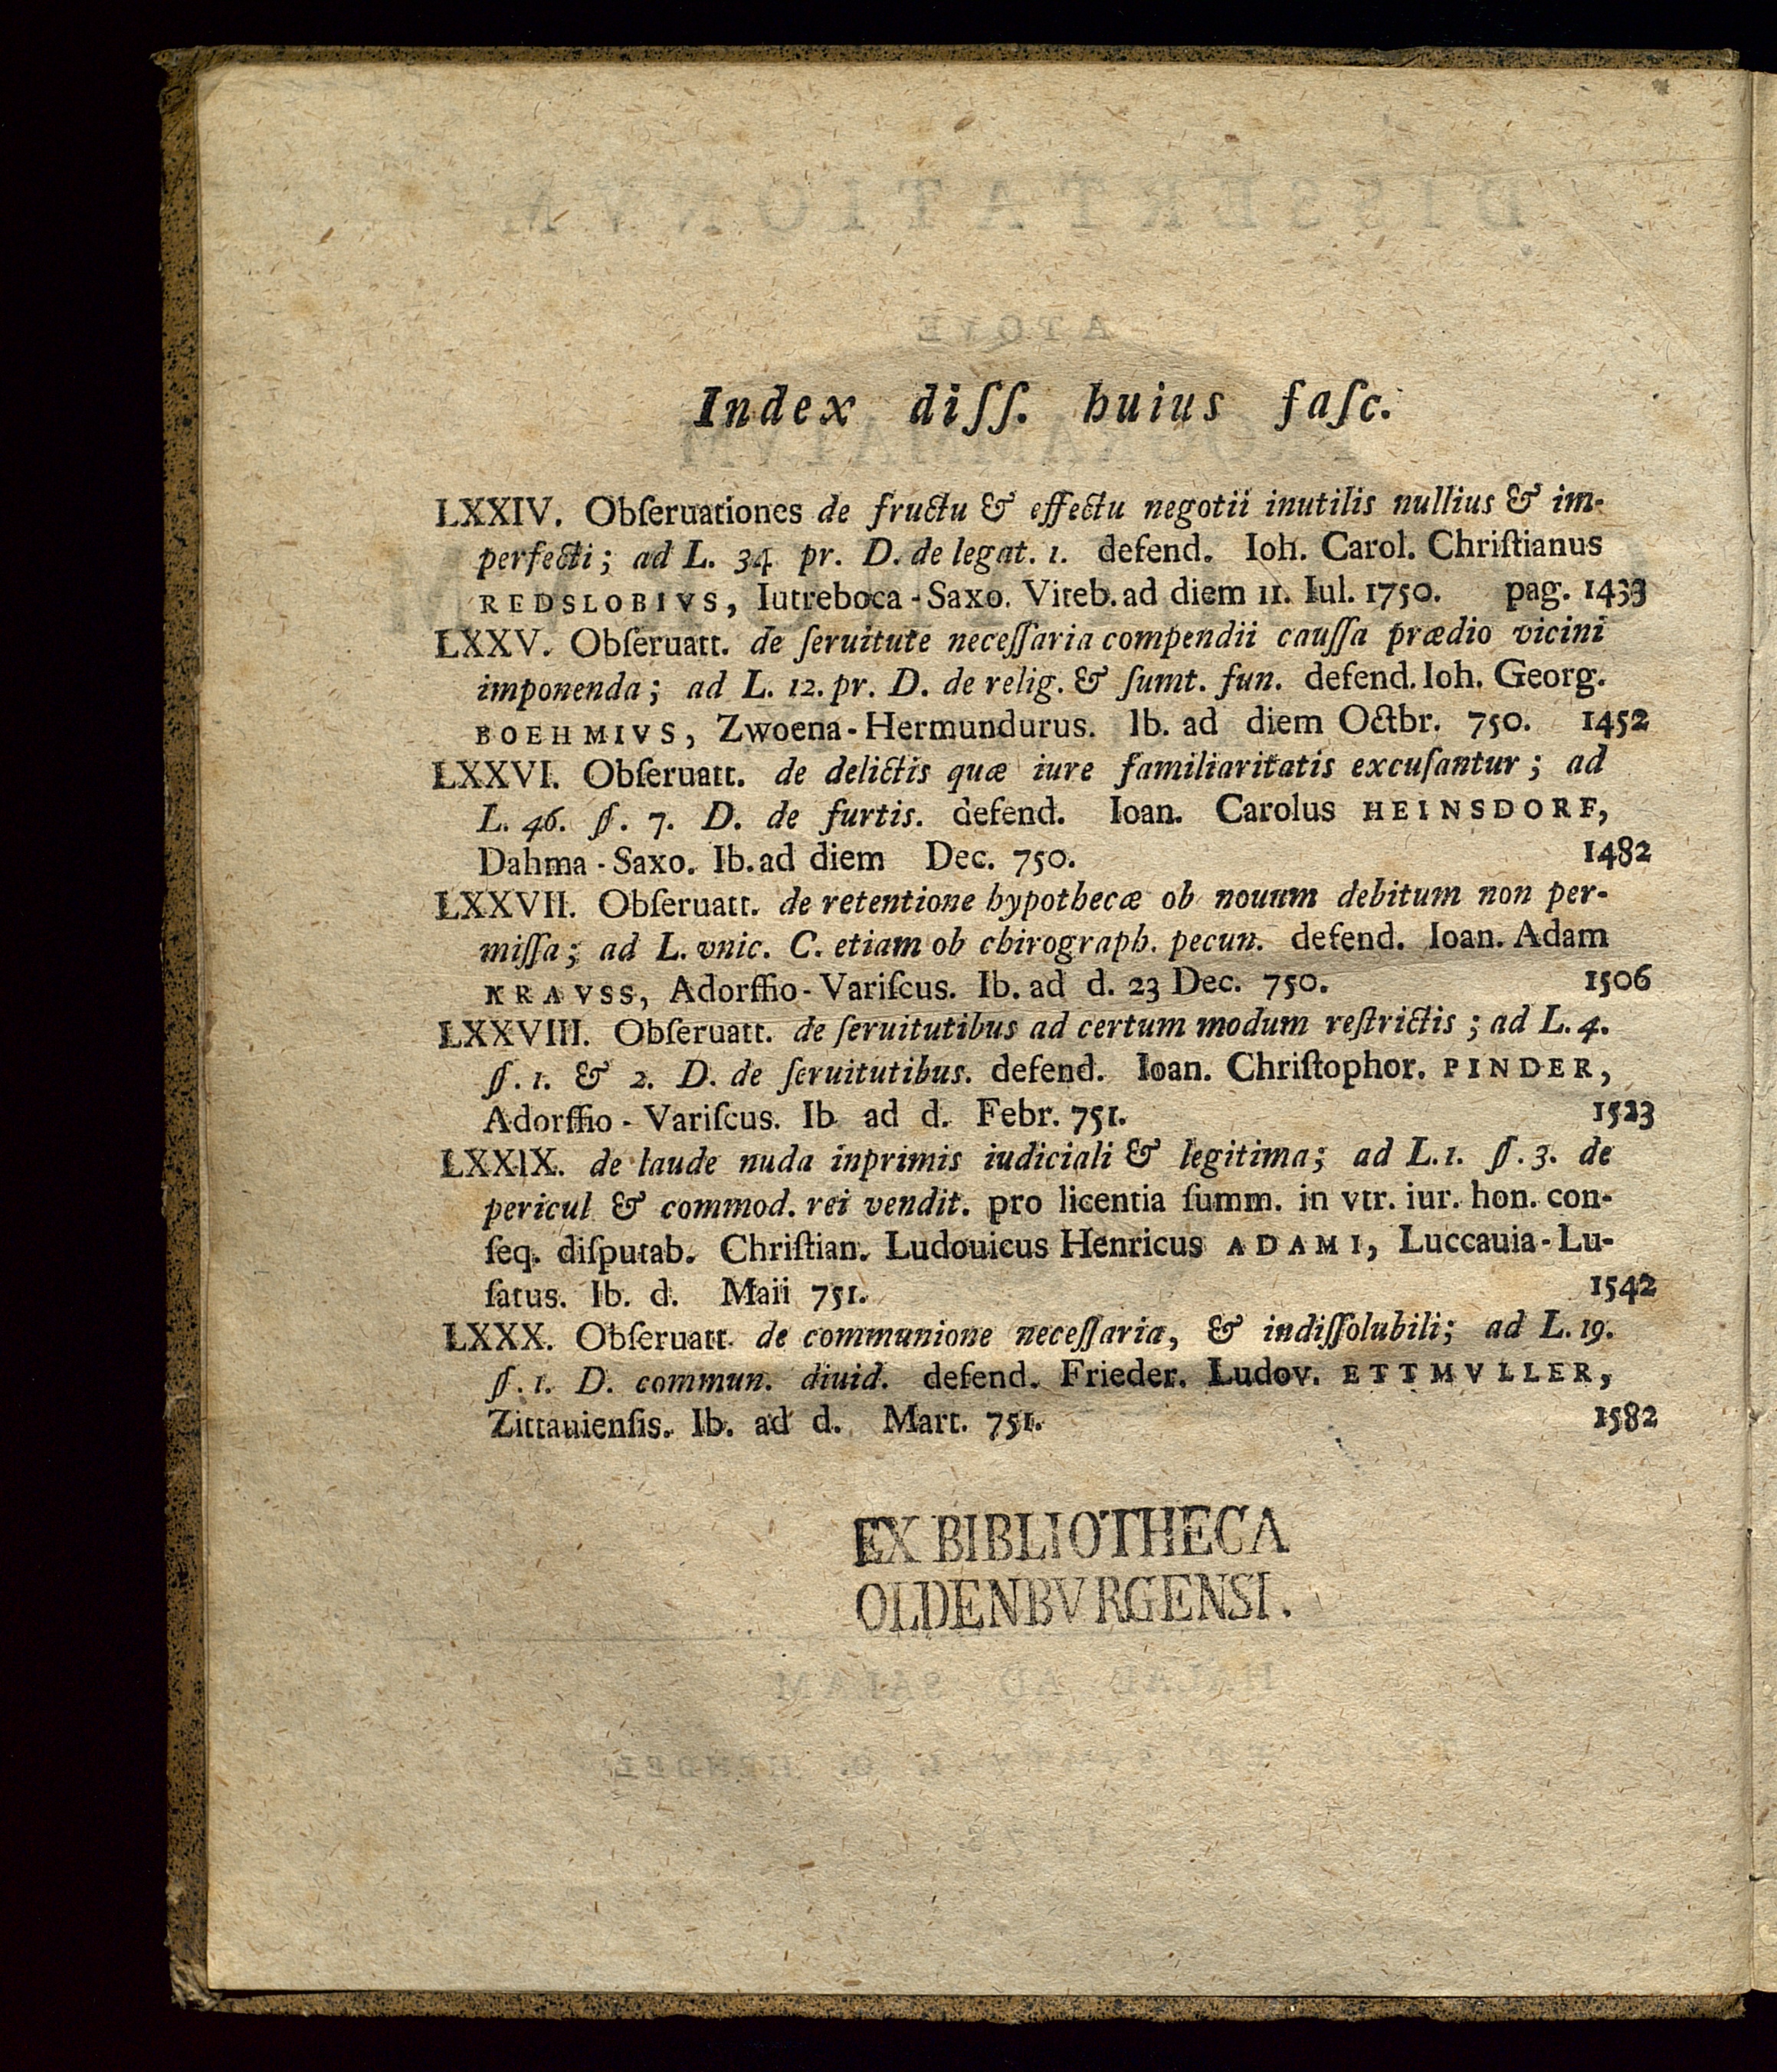 Index diſſ. huius faſc.
LXXIV. Obſeruationes de fructu & effectu negotii inutilis nullius & im-
perfecti; ad L. 34 pr. D. de legat. 1. defend. Ioh. Carol. Chriſtianus
REDSLOBIVS, Iutreboca-Saxo. Viteb. ad diem 11. Iul. 1750. pag. 1433
LXXV. Obſeruatt. de ſeruitute neceſſaria compendii cauſſa prædio vicini
imponenda; ad L. 12. pr. D. de relig. & ſumt. fun. defend. Ioh. Georg.
BOEHMIVS, Zwoena-Hermundurus. Ib. ad diem Octbr. 750. 1452
LXXVI. Obſeruatt. de delictis quæ iure familiaritatis excuſantur; ad
L. 46. §. 7. D. de furtis. defend. Ioan. Carolus HEINSDORF,
Dahma-Saxo. Ib. ad diem Dec. 750. 1482
LXXVII. Obſeruatt. de retentione hypothecæ ob nouum debitum non per-
miſſa; ad L. vnic. C. etiam ob chirograph. pecun. defend. Ioan. Adam
KRAVSS, Adorffio-Variſcus. Ib. ad d. 23 Dec. 750. 1506
LXXVIII. Obſeruatt. de ſeruitutibus ad certum modum reſtrictis; ad L. 4.
§. 1. & 2. D. de ſeruitutibus. defend. Ioan. Chriſtophor. PINDER,
Adorffio-Variſcus. Ib ad d. Febr. 751. 1523
LXXIX. de laude nuda inprimis iudiciali & legitima; ad L. 1. §. 3. de
pericul & commod. rei vendit. pro licentia ſumm. in vtr. iur. hon. con-
ſeq. diſputab. Chriſtian. Ludouicus Henricus ADAMI, Luccauia-Lu-
ſatus. Ib. d. Maii 751. 1542
LXXX. Obſeruatt. de communione neceſſaria, & indiſſolubili; ad L. 19.
§. 1. D. commun. diuid. defend. Frieder. Ludov. ETTMVLLER,
Zittauienſis. Ib. ad d. Mart. 751. 1582
EX BIBLIOTHECA
OLDENBVRGENSI.